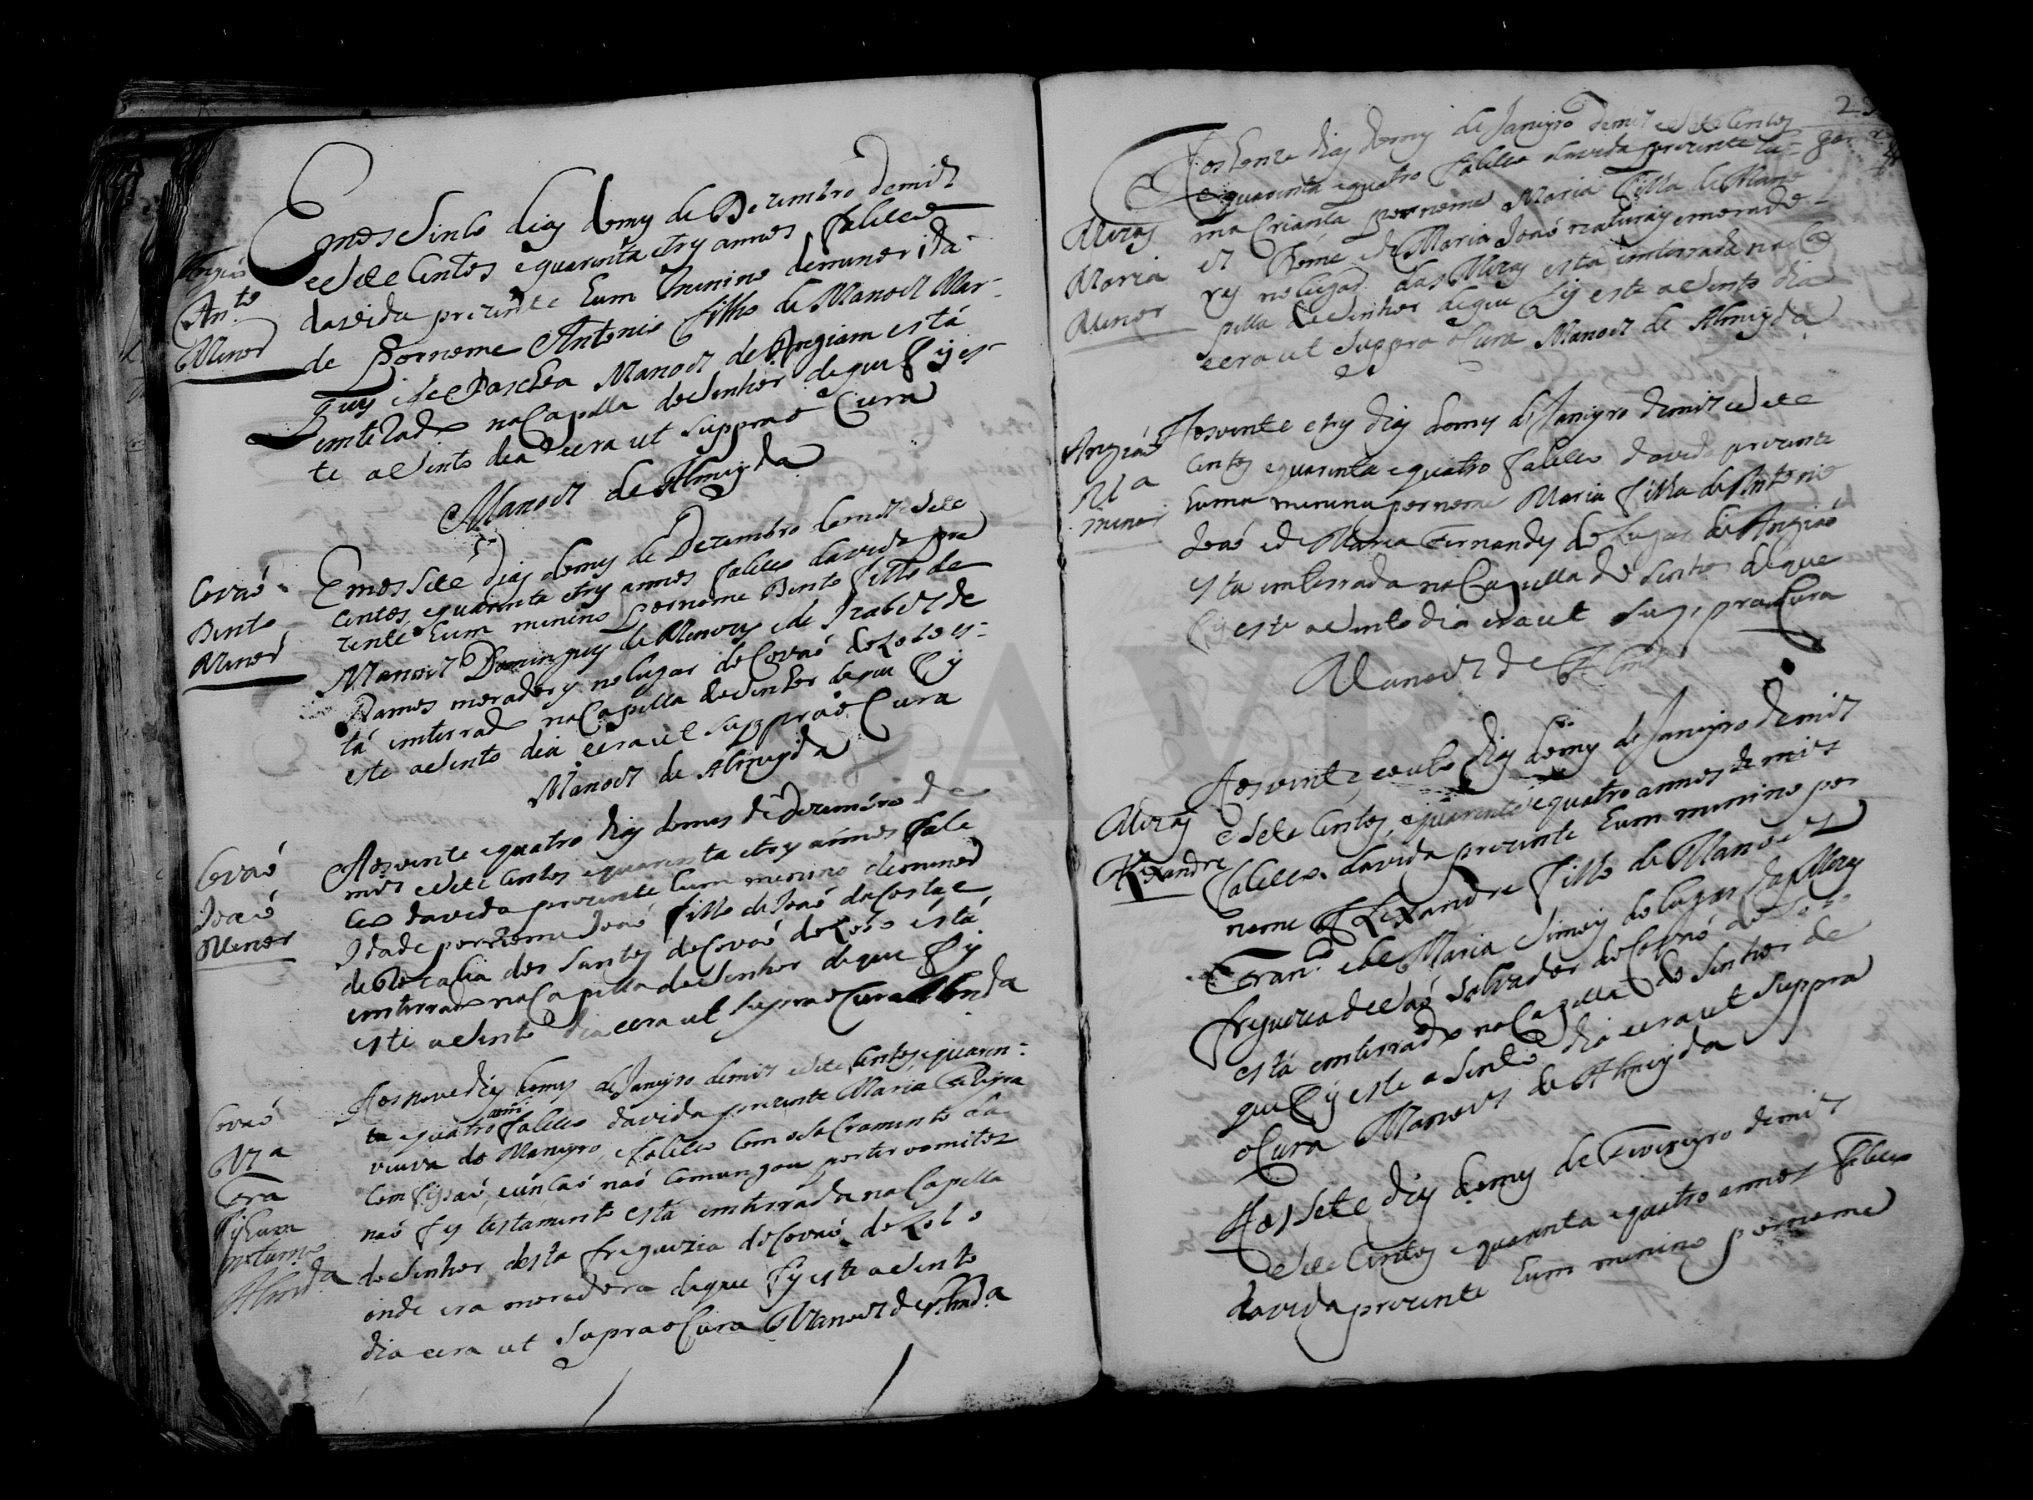 Emos sinto dias do mes de Dezembro de mil
e sete centos e quarenta e tres annos faleceo
da vida prezente hum minino de minor ida-
de por nome Antonio filho de Manoel Mar-
ques e de Paschoa Manoel de Angiam está
emterado na Capella do Senhor de que fis es-
te asento dia e era ut suppra o Cura
Manoel de Almeyda
Angiaõ
Ant.º
Menor
Emos sete dias do mes de Dezembro de mil e sete
centos e quarenta e tres annos faleceo da vida pre
zente hum minino por nome Bento filho de
Manoel Domingues de e de Izabel de
Ramos moradores no lugar de Covaõ do Lobo es-
tá emterrado na Capella do Senhor de que fis
este asento dia e era ut suppra o Cura
Manoel de Almeyda
Covaõ
Bento
Menor
Aos vinte e quatro dias do mes de Dezembro de
mil e sete centos e quarenta e tres annos fale
ceo da vida prezente hum minino de menor
idade por nome Joaõ filho de Joaõ da Costa e
de dos Santos do Covaõ do Lobo está
emterrado na Capella do Senhor de que fis
este asento dia e era ut supra o Cura Almda
Covaõ
Joaõ
Menor
Aos nove dias do mes de Janeyro de mil e sete centos e quaren-
ta e quatro annos faleceo da vida prezente Maria
viuva do faleceo com o sacramento da
comfisaõ, e naõ comungou por ter vomitos
naõ fes testamento está emterrada na Capella
do Senhor desta freguezia do Covaõ do Lobo
onde era moradora de que fis este asento
dia e era ut supra o Cura Manoel de Almda
Covaõ
Ma
Almda
Aos honze dias do mes de Janeyro de mil e sete centos
e quarenta e quatro faleceo da vida prezente hu-
ma crianca por nome Maria filha de Mano
el Thome e de Maria Joaõ naturais e morado-
res no lugar das Mezas está emterrada na Ca
pella do Senhor de que fis este asento dia
e era ut suppra o Cura Manoel de Almeyda
Mezas
Maria
Menor
Aos vinte e tres dias do mes de Janeyro de mil e sete
centos e quarenta e quatro faleceo da vida prezente
huma menina por nome Maria filha de Antonio
Joaõ e de Maria Fernandes do lugar de Angiaõ
esta emterrada na Capella do Senhor de que
fis este asento dia e era ut suppra o Cura
Manoel de Almda
Angiaõ
Ma
minor
Aos vinte e outo dias do mes de Janeyro de mil
e sete centos, e quarenta e quatro annos de mil
faleceo da vida prezente hum minino por
nome Alexandre filho de Manoel
Fran.co e de Maria Simois do lugar das Mezas
freguezia de Saõ Salvador do Covaõ do Lobo
está emterrado na Capella do Senhor de
que fis este asento dia e era ut suppra
o Cura Manoel de Almeyda
Mezas
Alexandre
Aos sete dias do mes de Fevereyro de mil
e sete centos e quarenta e quatro annos faleceo
da vida prezente hum minino por nome